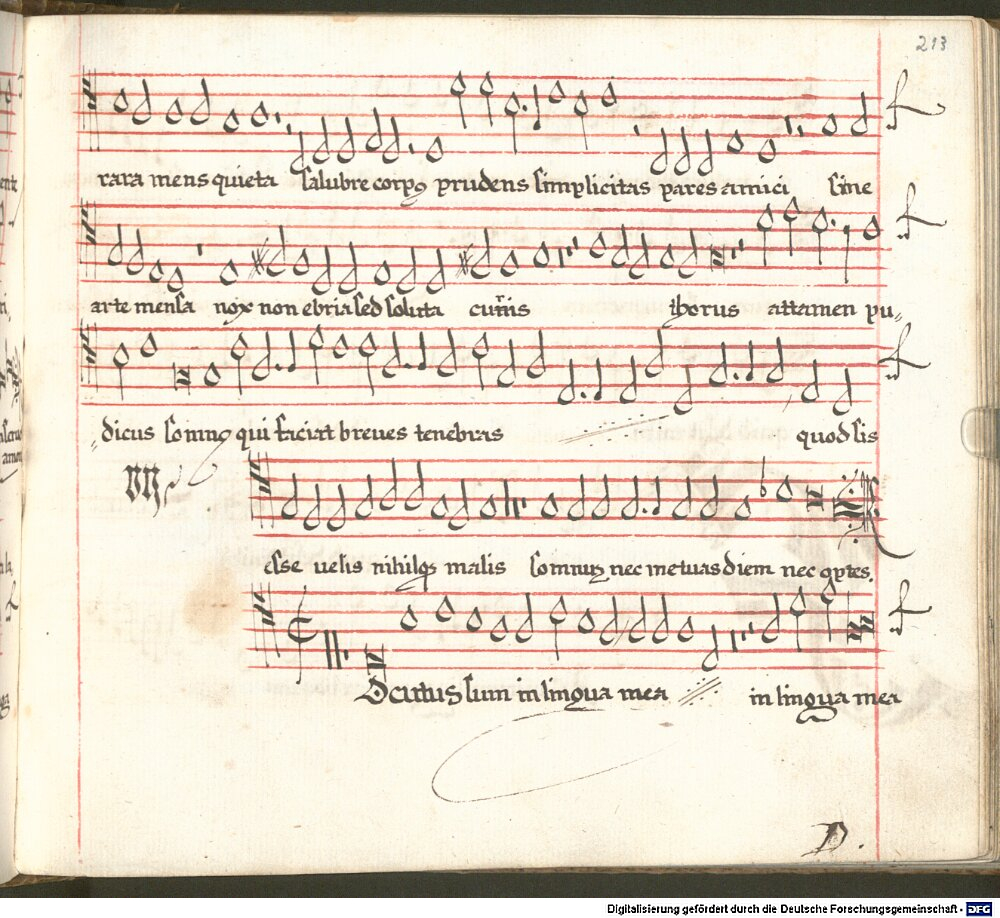 213
rara mens quieta salubre corpꝰ prudens simplicitas pares amici sine
arte mensa nox non ebria sed soluta cur̃is thorus attamen pu„
„dicus somnꝰ qui faciat breues tenebras quod sis
esse uelis nihilqꝫ malis somnuꝫ nec metuas diem nec optes.
Ocutus sum in lingua mea in lingua mea
D.
Digitalisierung gefördert durch die Deutsche Forschungsgemeinschaft - DFG